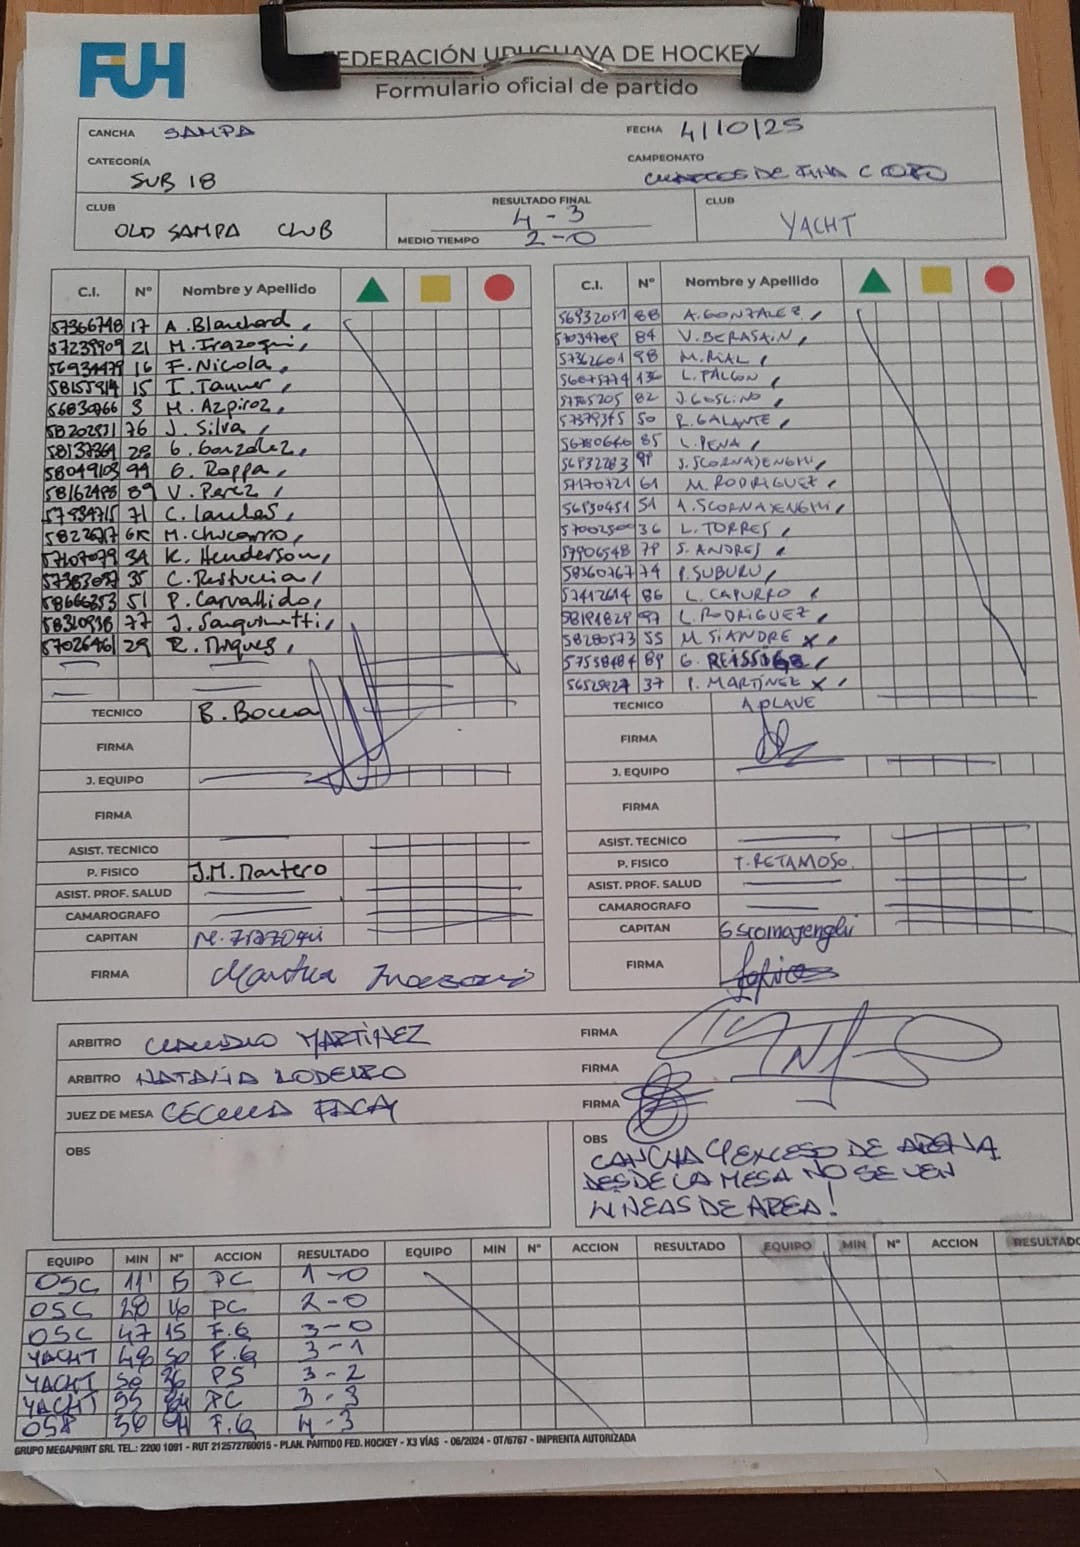 FUH
FEDERACIÓN URUGUAYA DE HOCKEY
Formulario oficial de partido
CANCHA SAMPA
FECHA 4/10/25
CATEGORÍA SUB 18
CAMPEONATO
CLUB OLD SAMPA CLUB
RESULTADO FINAL 4-3
MEDIO TIEMPO 2-0
CLUB YACHT
C.I. Nº Nombre y Apellido
57366748 17 A. Blanchard
57239909 21 M. Irazoqui
56934479 16 F. Nicola
15 I. Tanner
56830766 3 M. Azpiroz
58202531 76 J. Silva
58137364 28 G. Gonzalez
58049103 99 G. Rappa
58162498 89 V. Perez
57934715 71 C.
M. Chocarro
K. Henderson
35 C. Restuccia
58666353 51 P. Carvallido
58310938 77 J. Sanguinetti
57026461 29 R.
TECNICO B. Bocca
FIRMA
J. EQUIPO
FIRMA
ASIST. TECNICO
P. FISICO J.M. Mantero
ASIST. PROF. SALUD
CAMAROGRAFO
CAPITAN M. IRAZOQUI
FIRMA
C.I. Nº Nombre y Apellido
56932051 88 A. GONZALEZ
57034789 84 V. BERASAIN
57362601 98 M. RIAL
136 L. FALCON
57785205 82 J. GOSLINO
57379345 50 R. GALANTE
56780640 85 L. PENA
56932283 99 S. SCORNAJENGHI
57170721 61 M. RODRIGUEZ
56930451 51 A. SCORNAJENGHI
57002500 36 L. TORRES
57906548 79 S. ANDRES
58360767 74 P. SUBURU
57412614 86 L. CAPURRO
58191829 97 L. RODRIGUEZ
58280573 55 M. SIANDRE X
57558484 89 G. REISSIG
56529927 37 P. MARTÍNEZ X
TECNICO A OLAVE
FIRMA
J. EQUIPO
FIRMA
ASIST. TECNICO
P. FISICO T. RETAMOSO.
ASIST. PROF. SALUD
CAMAROGRAFO
CAPITAN S Scornajenghi
FIRMA
ARBITRO CLAUDIO MARTINEZ FIRMA
ARBITRO NATALIA FIRMA
JUEZ DE MESA CECILIA FIRMA
OBS
OBS
CANCHA C/EXCESO DE ARENA
DESDE LA MESA NO SE VEN
LINEAS DE AREA!
EQUIPO MIN Nº ACCION RESULTADO EQUIPO MIN Nº ACCION RESULTADO EQUIPO MIN Nº ACCION RESULTADO
OSC 11' PC 1-0
OSC 28 16 PC 2-0
OSC 47 15 F.G 3-0
YACHT 48 50 F.G 3-1
YACHT 50 36 PS 3-2
YACHT 55 84 PC 3-3
56 F.G 4-3
GRUPO MEGAPRINT SRL TEL.: 2200 1091 - RUT 212572760015 - PLAN. PARTIDO FED. HOCKEY - X3 VÍAS - 06/2024 - OT/6767 - IMPRENTA AUTORIZADA